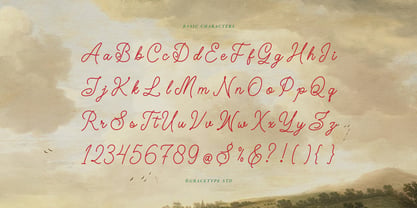 BASIC CHARACTERS
AaBbCcDdEeFfGgHhIi
JjKkLlMmNnOoPpQq
RrSsTtUuVvWwXxYyZz
1234567890@$%&?!(){}